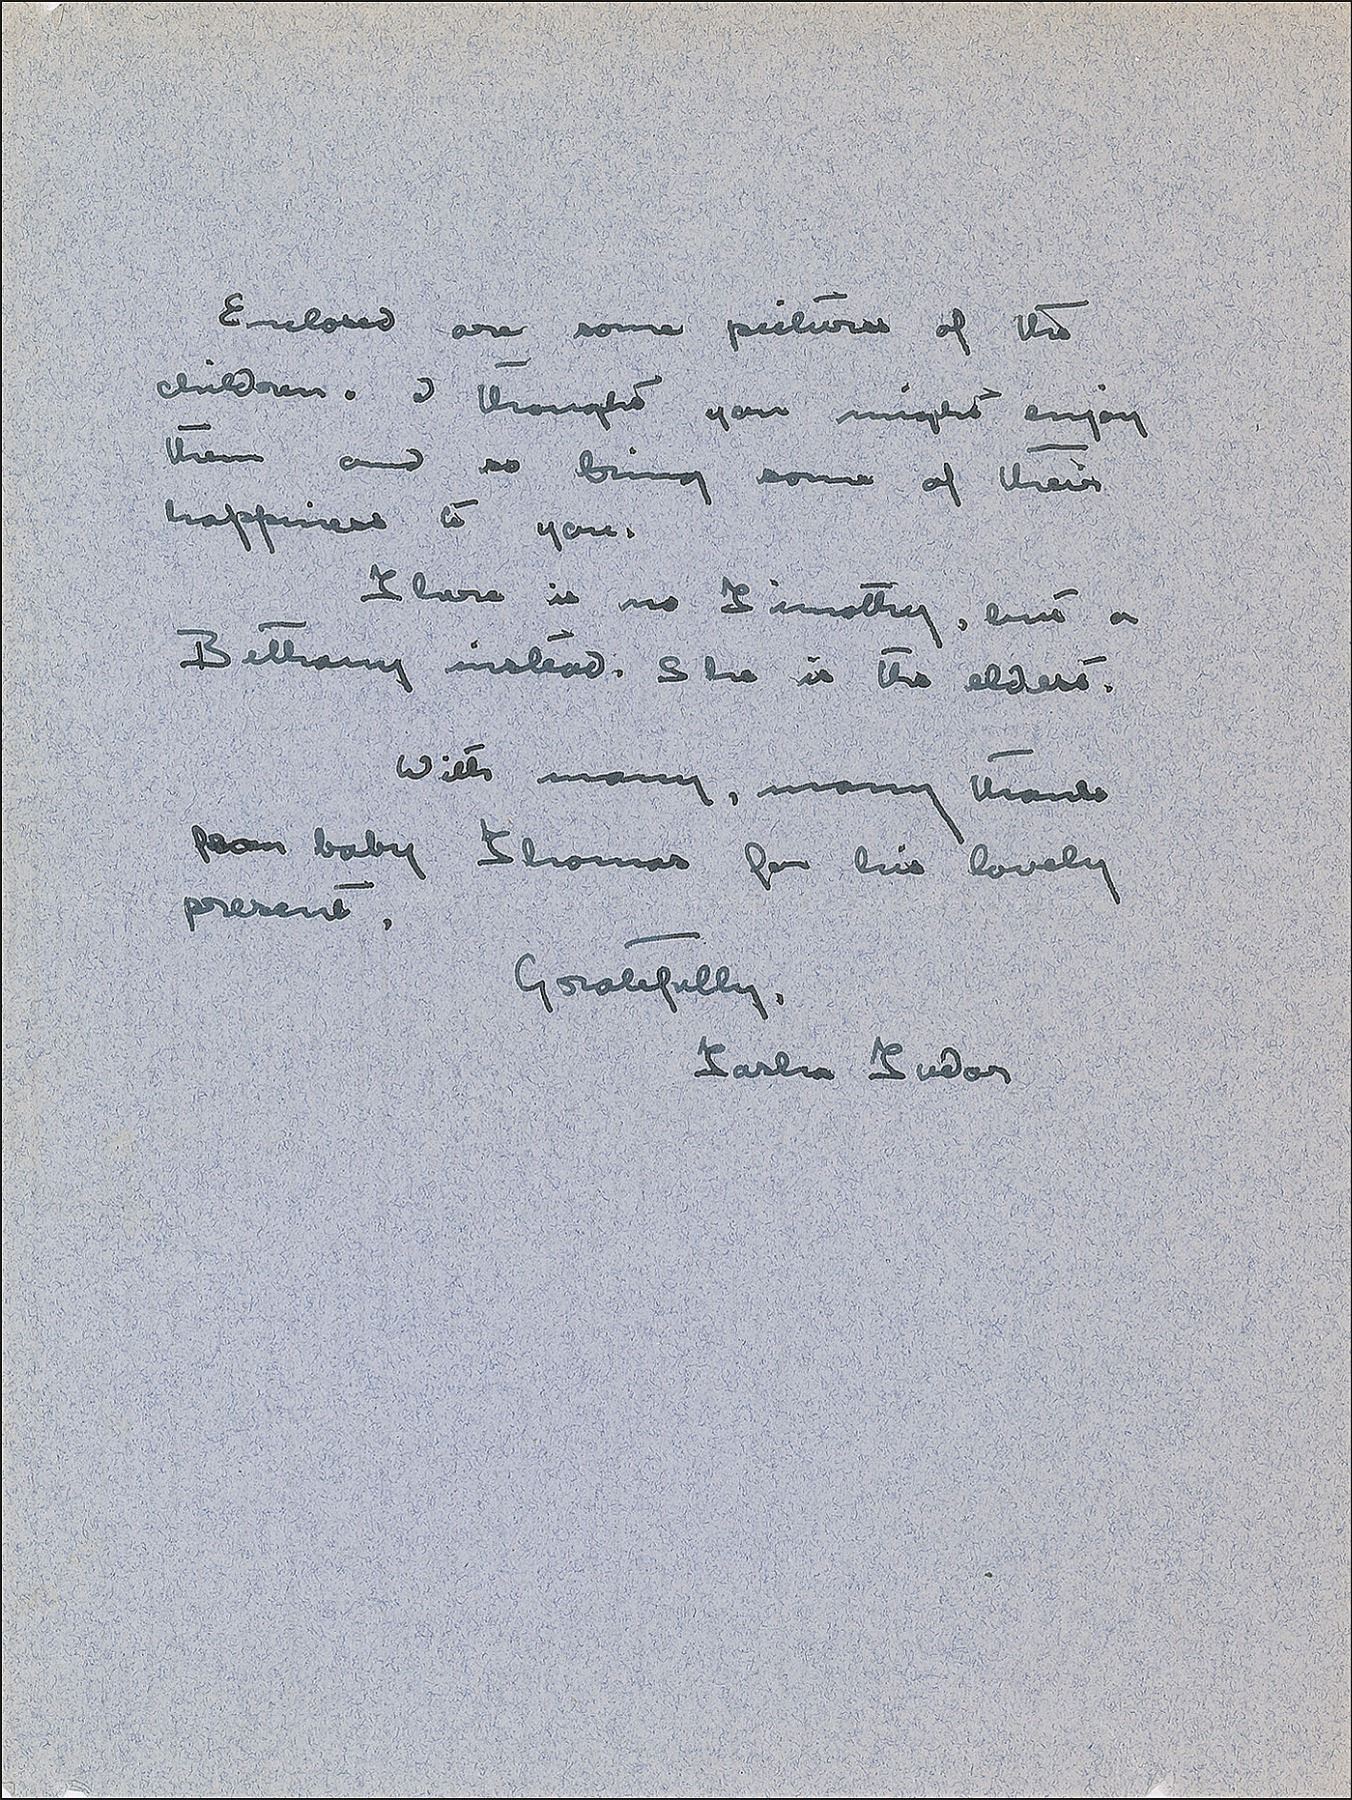 Enclosed are some pictures of the
children. I thought you might enjoy
them and so bring some of their
happiness to you.
There is no Timothy, but a
Bethany instead. She is the eldest.
With many, many thanks
from baby Thomas for his lovely
present,
Gratefully,
Tasha Tudor